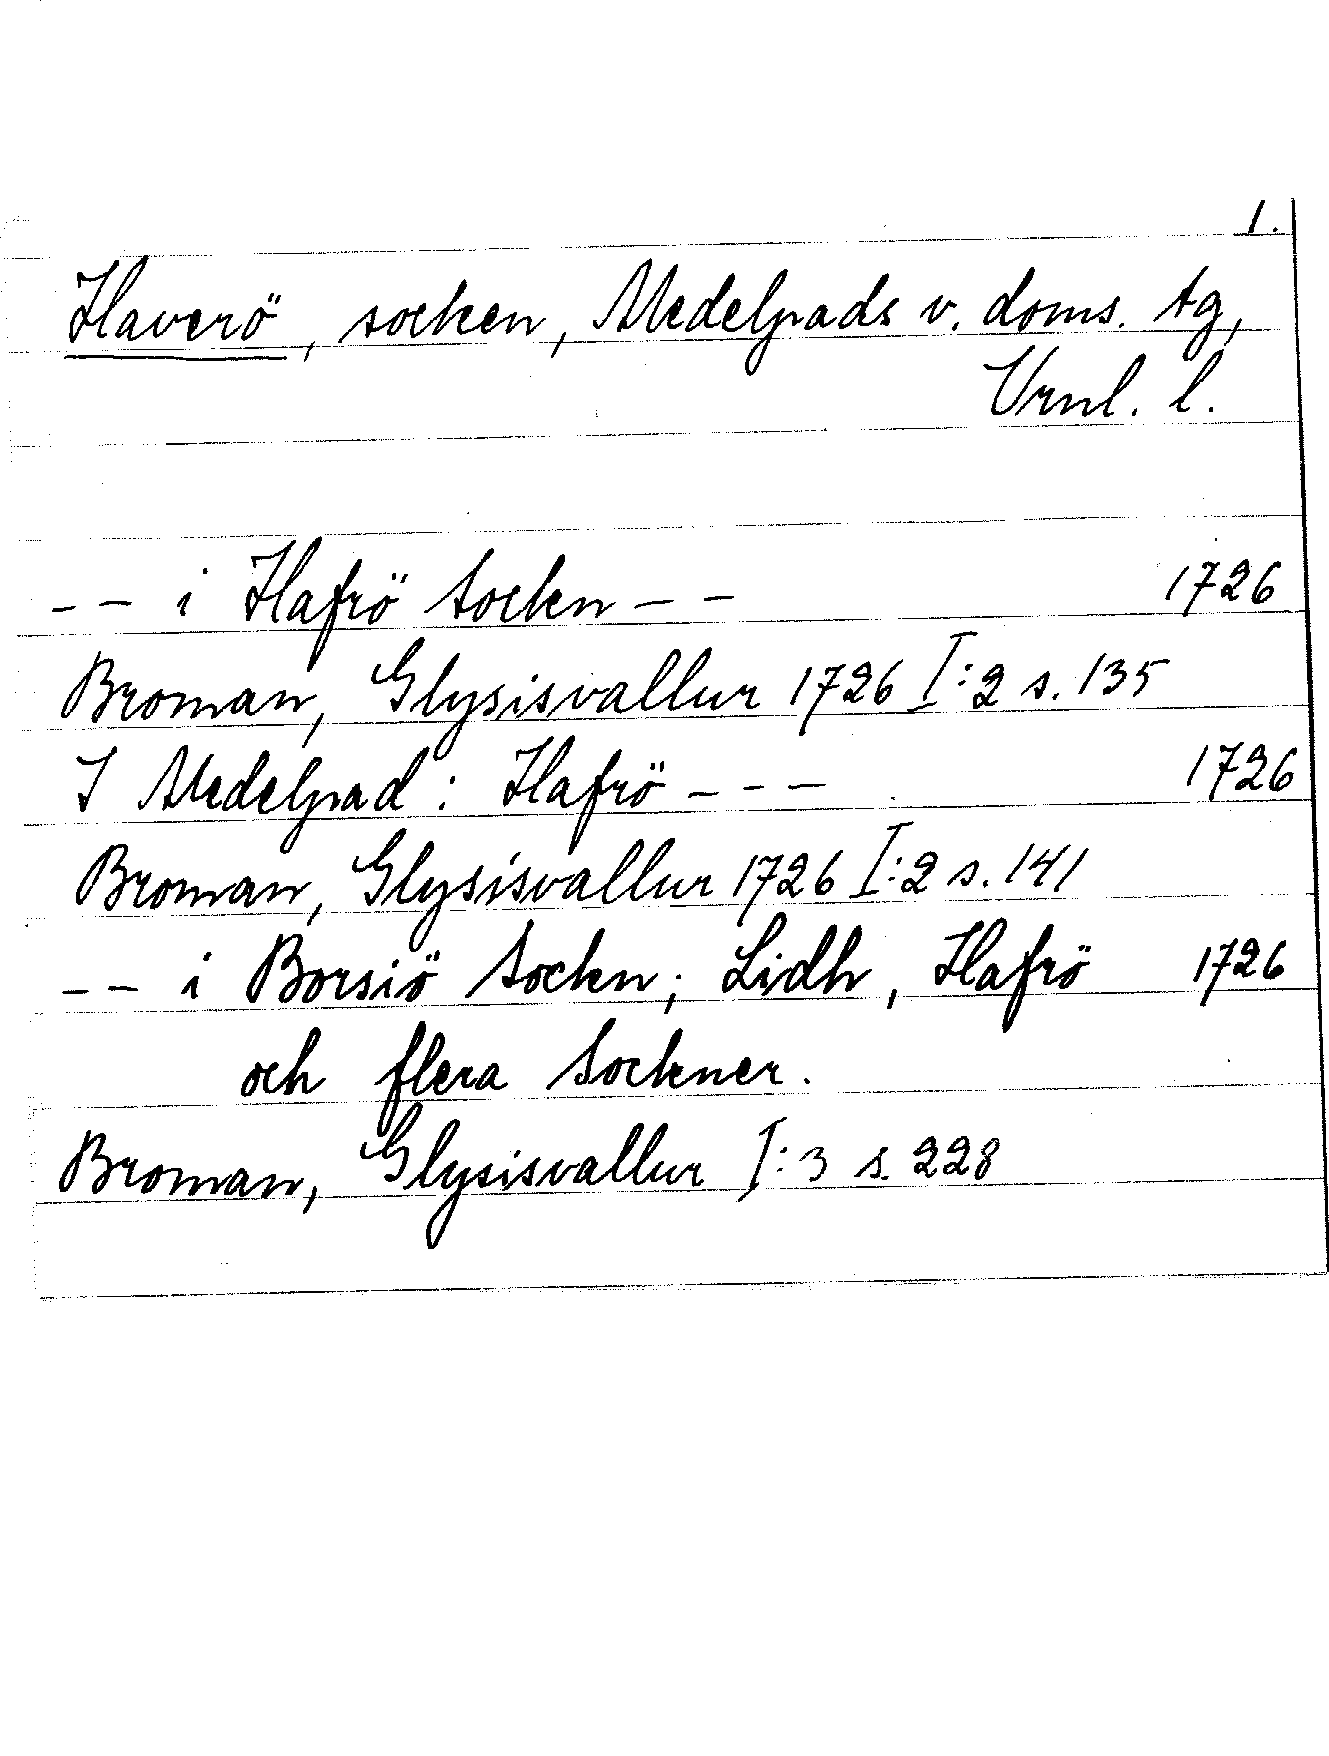 1.
Haverö, socken, Medelpads v. doms. tg,
Vrnl. l.
-- i Hafrö Sockn -- 1726
Broman, Glysisvallur 1726 I:2 s. 135
I Medelpad: Hafrö --- 1726
Broman, Glysisvallur 1726 I:2 s. 141
-- i Borsiö Sockn; Lidh, Hafrö 1726
och flera Sockner.
Broman, Glysisvallur I:3 s. 228